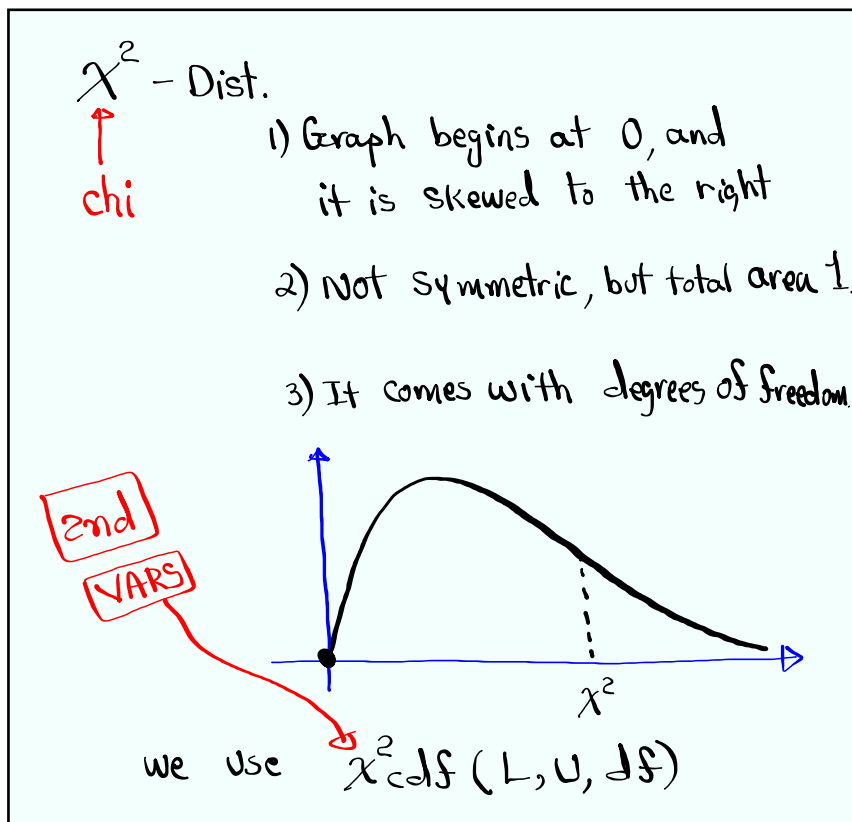 χ² - Dist.
chi
1) Graph begins at 0, and
it is skewed to the right
2) Not symmetric, but total area 1.
3) It comes with degrees of freedom.
2nd
VARS
χ²
we use χ²cdf (L, U, df)